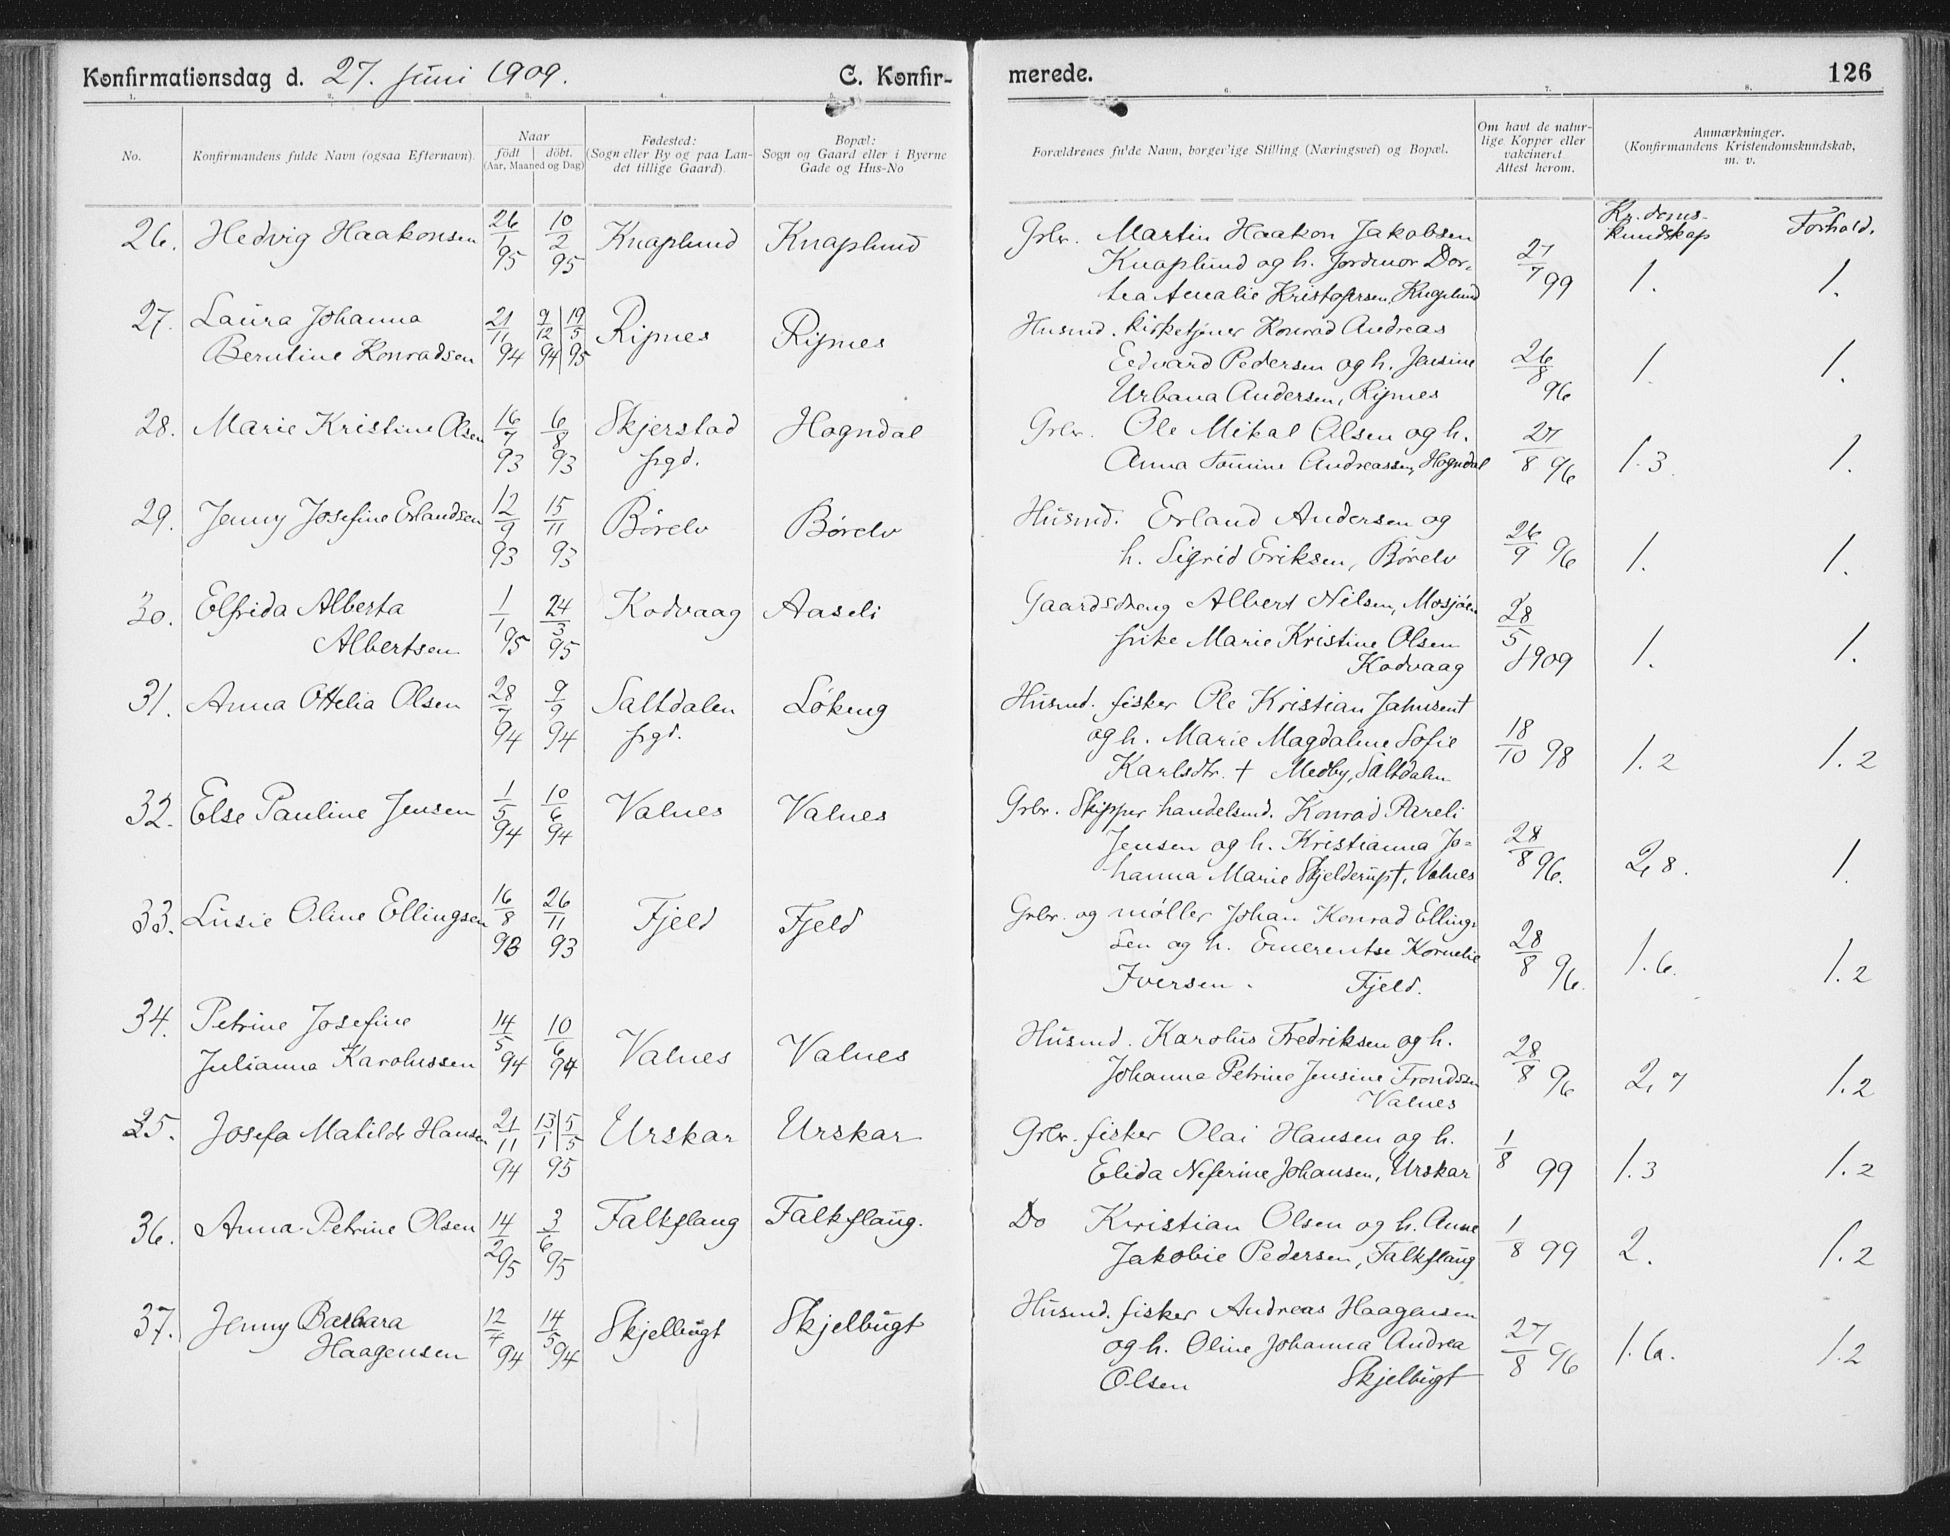 Konfirmationsdag d. 27. Juni 1909. C. Konfir-
merede. 126
1. 2. 3. 4. 5. 6. 7. 8.
No.
Konfirmandens fulde Navn (ogsaa Efternavn).
Naar
födt döbt.
(Aar, Maaned og Dag)
Fødested:
(Sogn eller By og paa Lan-
det tillige Gaard).
Bopæl:
Sogn og Gaard eller i Byerne
Gade og Hus-No
Forældrenes fulde Navn, borgerlige Stilling (Næringsvei) og Bopæl.
Om havt de natur-
lige Kopper eller
vakcineret
Attest herom.
Anmærkninger.
(Konfirmandens Kristendomskundskab,
m. v.
Kr.doms-
kundskap
Forhold.
26. Hedvig Haakonsen 26/1 95 10/2 95 Knaplund Knaplund
Grbr. Martin Haakon Jakobsen
Knaplund og h. Jordmor Dor-
tea Amalie Kristofersen, Knaplund
27/7 99 1. 1.
27. Laura Johanna
Berntine Konradsen
21/11 94 9/12 94 19/5 95 Ripnes Ripnes
Husmd. kirketjener Konrad Andreas
Edvard Pedersen og h. Jensine
Urbana Andersen, Ripnes
26/8 96 1. 1.
28. Marie Kristine Olsen 16/7 93 6/8 93 Skjerstad
prgd.
Hogndal
Grbr. Ole Mikal Olsen og h.
Anna Tomine Andreassen, Hogndal
27/8 96 1.3 1.
29. Jenny Josefine Erlandsen 12/9 93 15/11 93 Børelv Børelv
Husmd. Erland Andersen og
h. Sigrid Eriksen, Børelv
26/9 96 1. 1.
30. Elfrida Alberta
Albertsen
1/1 95 24/3 95 Kodvaag Aaseli
Gaardsdreng Albert Nilsen, Mosjøen
pike Marie Kristine Olsen
Kodvaag
28/5 1909 1. 1.
31. Anna Ottelia Olsen 28/7 94 9/9 94 Saltdalen
prgd.
Løkeng
Husmd. fisker Ole Kristian Jahnsen †
og h. Marie Magdalene Sofie
Karlsdtr. † Medby, Saltdalen
18/10 98 1.2 1.2
32. Else Pauline Jensen 1/5 94 10/6 94 Valnes Valnes
Grbr. Skipper handelsmd. Konrad Pareli
Jensen og h. Kristianna Jo-
hanna Marie Skjelderup †, Valnes
28/8 96. 2,8. 1.
33. Lusie Oline Ellingsen 16/8 93 26/11 93 Fjeld Fjeld
Grbr. og møller Johan Konrad Elling-
sen og h. Emerentse Kornelie
Iversen. Fjeld.
28/8 96. 1.6. 1.2
34. Petrine Josefine
Julianna Karolussen
14/5 94 10/6 94 Valnes Valnes
Husmd. Karolus Fredriksen og h.
Johanna Petrine Jensine Trondsen
Valnes
28/8 96 2,7 1.2
35. Josefa Matilde Hansen 21/11 94 13/1 5/5 95 Urskar Urskar
Grbr. fisker Olai Hansen og h.
Elida Neferine Johansen, Urskar
1/8 99 1.3 1.2
36. Anna Petrine Olsen 14/2 95 3/6 95 Falkflaug Falkflaug.
Do Kristian Olsen og h. Anne
Jakobie Pedersen, Falkflaug
1/8 99 2. 1.2
37. Jenny Barbara
Haagensen
12/4 94 14/5 94 Skjelbugt Skjelbugt
Husmd. fisker Andreas Haagensen
og h. Oline Johanna Andrea
Olsen Skjelbugt
27/8 96 1.6a. 1.2